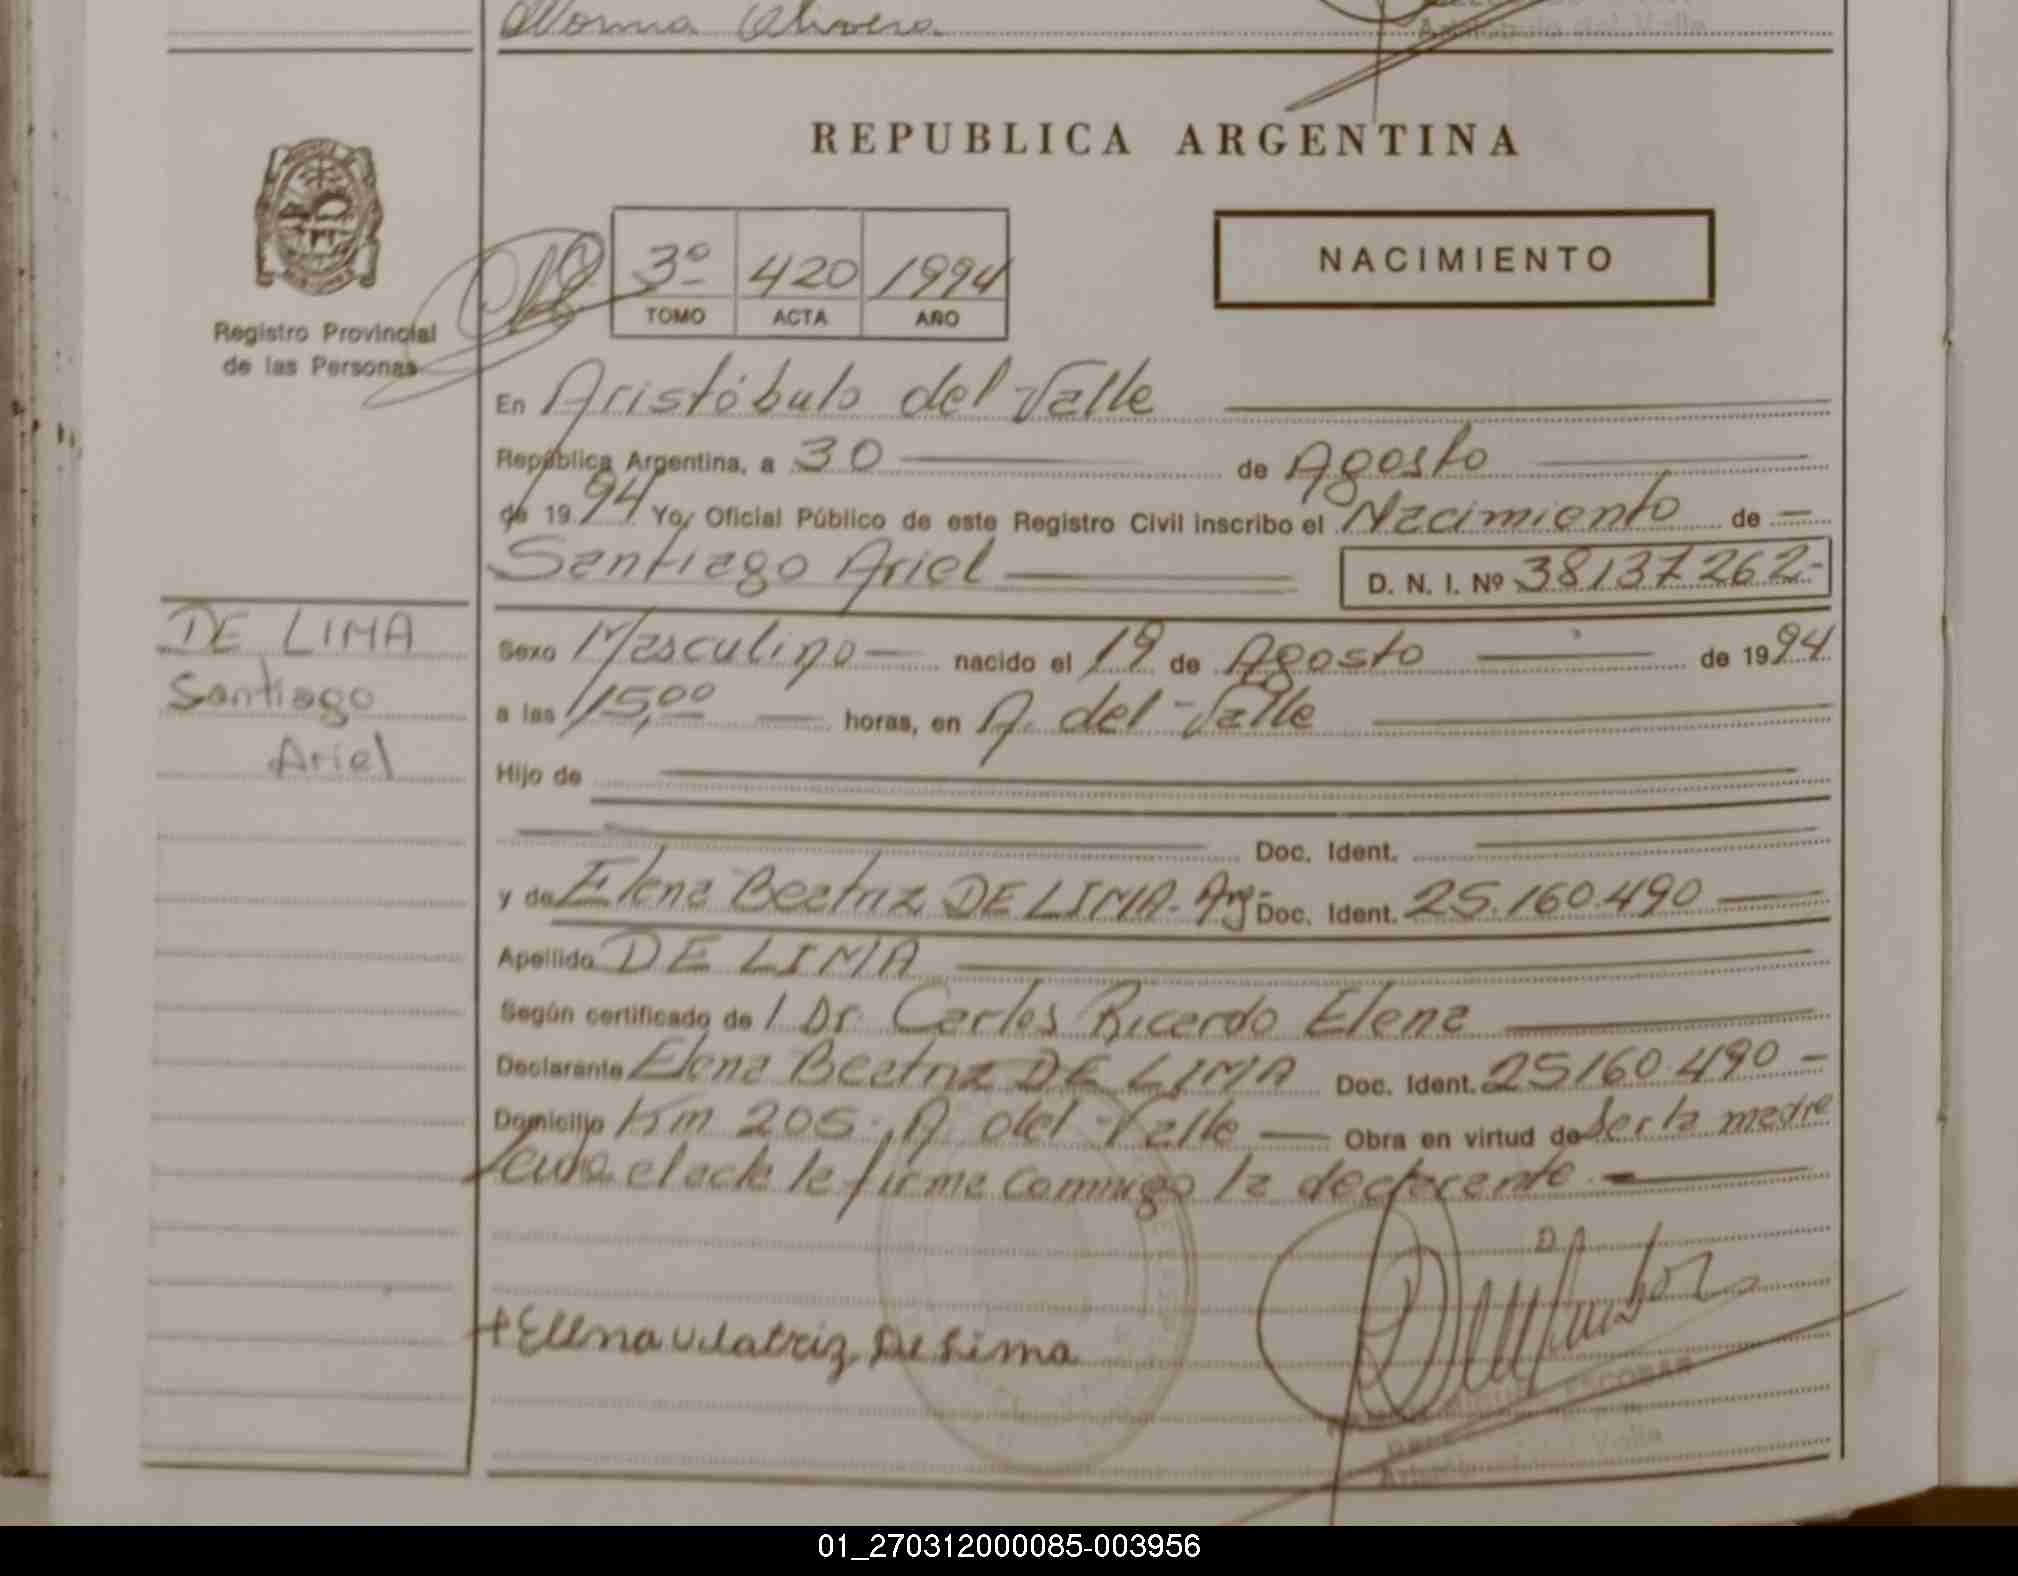 Norma Olivera
Aristóbulo del Valle
REPUBLICA ARGENTINA
Registro Provincial
de las Personas
3º 420 1994
TOMO ACTA AÑO
NACIMIENTO
En Aristóbulo del Valle
República Argentina, a 30 de Agosto
de 1994 Yo, Oficial Público de este Registro Civil inscribo el Nacimiento de —
Santiago Ariel D. N. I. Nº 38137262-
DE LIMA
Santiago
Ariel
Sexo Masculino — nacido el 19 de Agosto de 1994
a las 15,00 horas, en A. del Valle
Hijo de
Doc. Ident.
y de Elena Beatriz DE LIMA- Arg- Doc. Ident. 25.160.490
Apellido DE LIMA
Según certificado de l Dr. Carlos Ricardo Elena
Declarante Elena Beatriz DE LIMA Doc. Ident. 25160.490 –
Domicilio Km 205. A del Valle — Obra en virtud de Ser la madre
el acta la firma conmigo la declarante
+ Ellena Viatriz De Lima
ESCOBAR
Valle
01_270312000085-003956